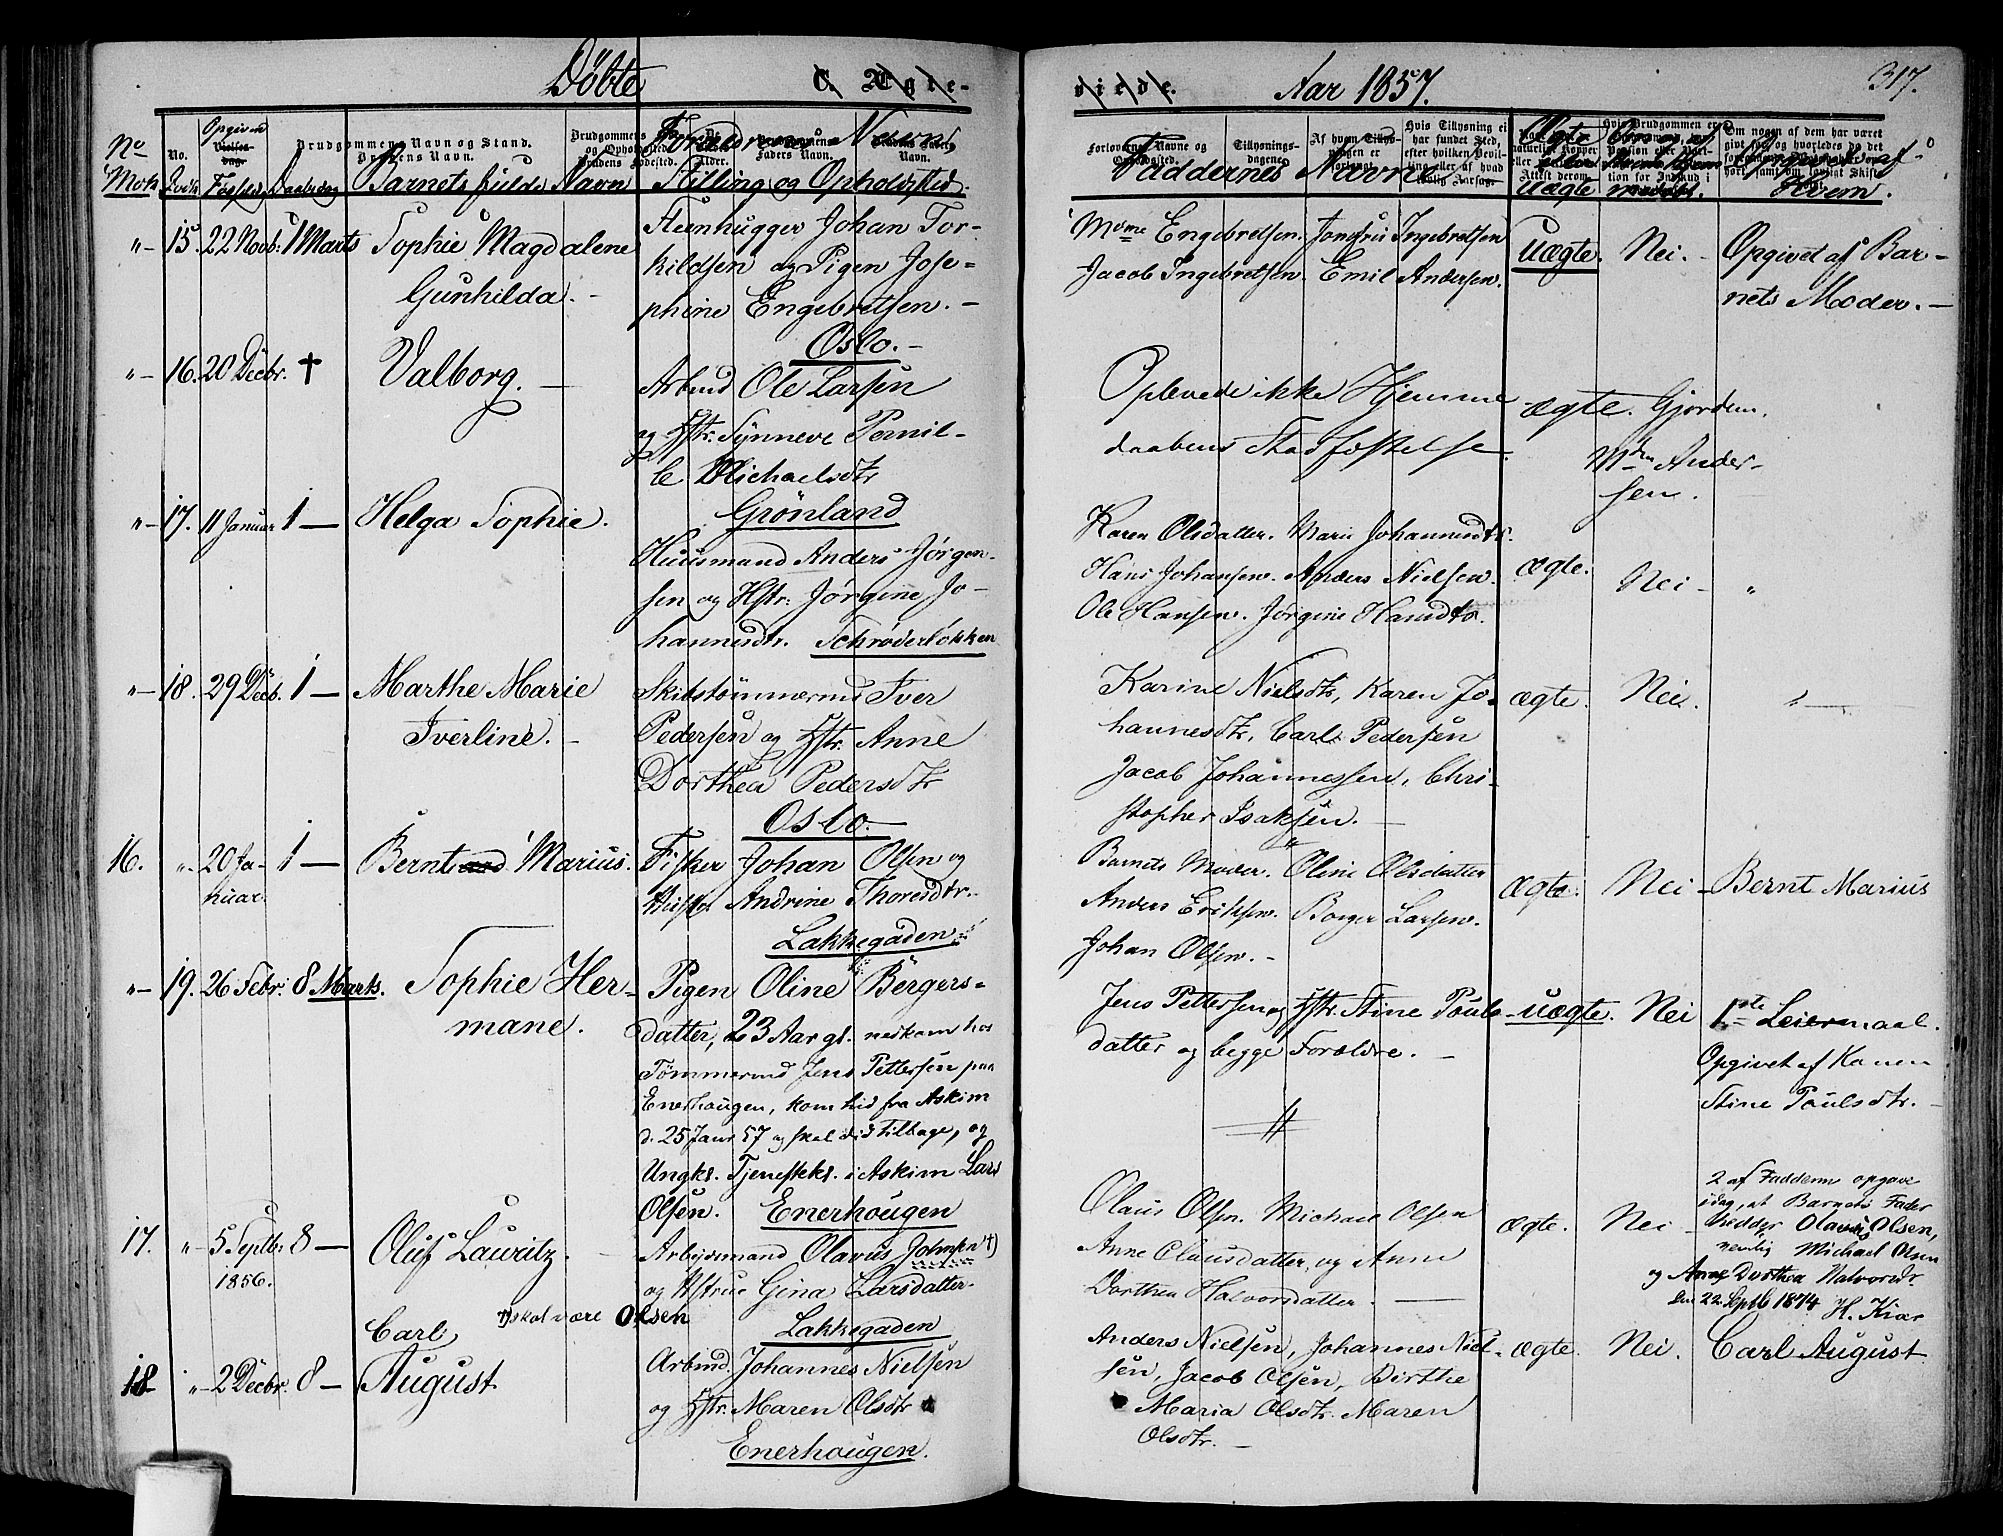 Döbte C. Ægte-
viede. Aar 1857. 317.
No Mdk. No. Qvdk. Opgiven Fødsels Daabsdag Barnets fulde Navn Forældrenes Navne Stilling og Opholdsted.
Faddernes Navne Ægte eller Uægte Opgivet af Hvem.
"- 15. 22 Novb. 1 Marts Sophie Magdalene
Gunhilda. -
Steenhugger Johan Tor-
kildsen og Pigen Jose-
phine Engebretsen. -
Oslo. -
Mdme Engebretsen. Jomfru Ingebretsen
Jacob Ingebretsen. Emil Andersen.
Uægte. Nei. - Opgivet af Bar-
nets Moder. -
"- 16. 20 Decbr. † Valborg. -
Arbmd Ole Larsen
og Hstr. Synneve Pernil-
le Michaelsdtr
Grønland
Oplevede ikke Hjemme
daabens Stadfæstelse
ægte. Gjordem.
Mdm Ander-
sen.
"- 17. 11 Januar 1 - Helga Sophie.
Huusmand Anders Jørgen-
sen og Hstr: Jørgine Jo-
hannesdtr. Schrøderløkken
Karen Olsdatter. Marie Johannesdtr.
Hans Johansen. Anders Nielsen.
Ole Hansen. Jørgine Hansdtr.
ægte. Nei - "
"- 18. 29 Decb. 1 - Marthe Marie
Iverline. -
Skibstømmermd Iver
Pedersen og Hstr. Anne
Dorthea Pedersdtr
Oslo. -
Karine Nielsdtr, Karen Jo-
hannesdtr, Carl Pedersen
Jacob Johannessen, Chri-
stopher Isaksen. -
ægte. Nei. "-
16. "- 20 Ja-
nuar. 1 - Berntand Marius.
Fisker Johan Olsen og
Hustr Andrine Thoresdtr.
Lakkegaden
Barnets Moder. Oline Olsdatter
Anders Eriksen. Borger Larsen.
Johan Olsen. -
ægte. Nei - Bernt Marius
"- 19. 26 Febr. 8 Marts. Sophie Her-
mane.
Pigen Oline Børgers-
datter, 23 Aar gl. nedkom hos
Tømmermd Jens Pettersen paa
Enerhougen, kom hid fra Askim
d. 25 Janr 57 og skal did tilbage, og
Ungkl. Tjenestekl. i Askim Lars
Olsen. Enerhougen
Jens Pettersen og Hstr. Stine Pouls-
datter og begge Forældre. -
uægte. Nei 1ste Leiermaal.
Opgivet af Konen
Stine Poulsdtr. -
17. "- 5 Septbr.
1856. 8 - Oluf Lauritz.
Arbeidsmand Olavus Johnsen †)
og Hstrue Gina Larsdatter.
†) skal være Olsen
Lakkegaden
Olaus Olsen. Michael Olsen
Anne Clausdatter, og Anne
Dorthea Halvorsdatter. -
ægte. Nei - 2 af Faddern opgave
idag, at Barnets Fader
hedder Olavus Olsen,
nemlig Michael Olsen
og Anne Dorthea Halvorsdr.
den 22 Septb 1874 H. Kiær
18 "- 2 Decbr. 8 - Carl
August
Arbmd. Johannes Nielsen
og Hstr. Maren Olsdtr
Enerhougen.
Anders Nielsen, Johannes Niel-
sen, Jacob Olsen, Birthe
Maria Olsdtr. Maren
Olsdtr. -
ægte. Nei. Carl August